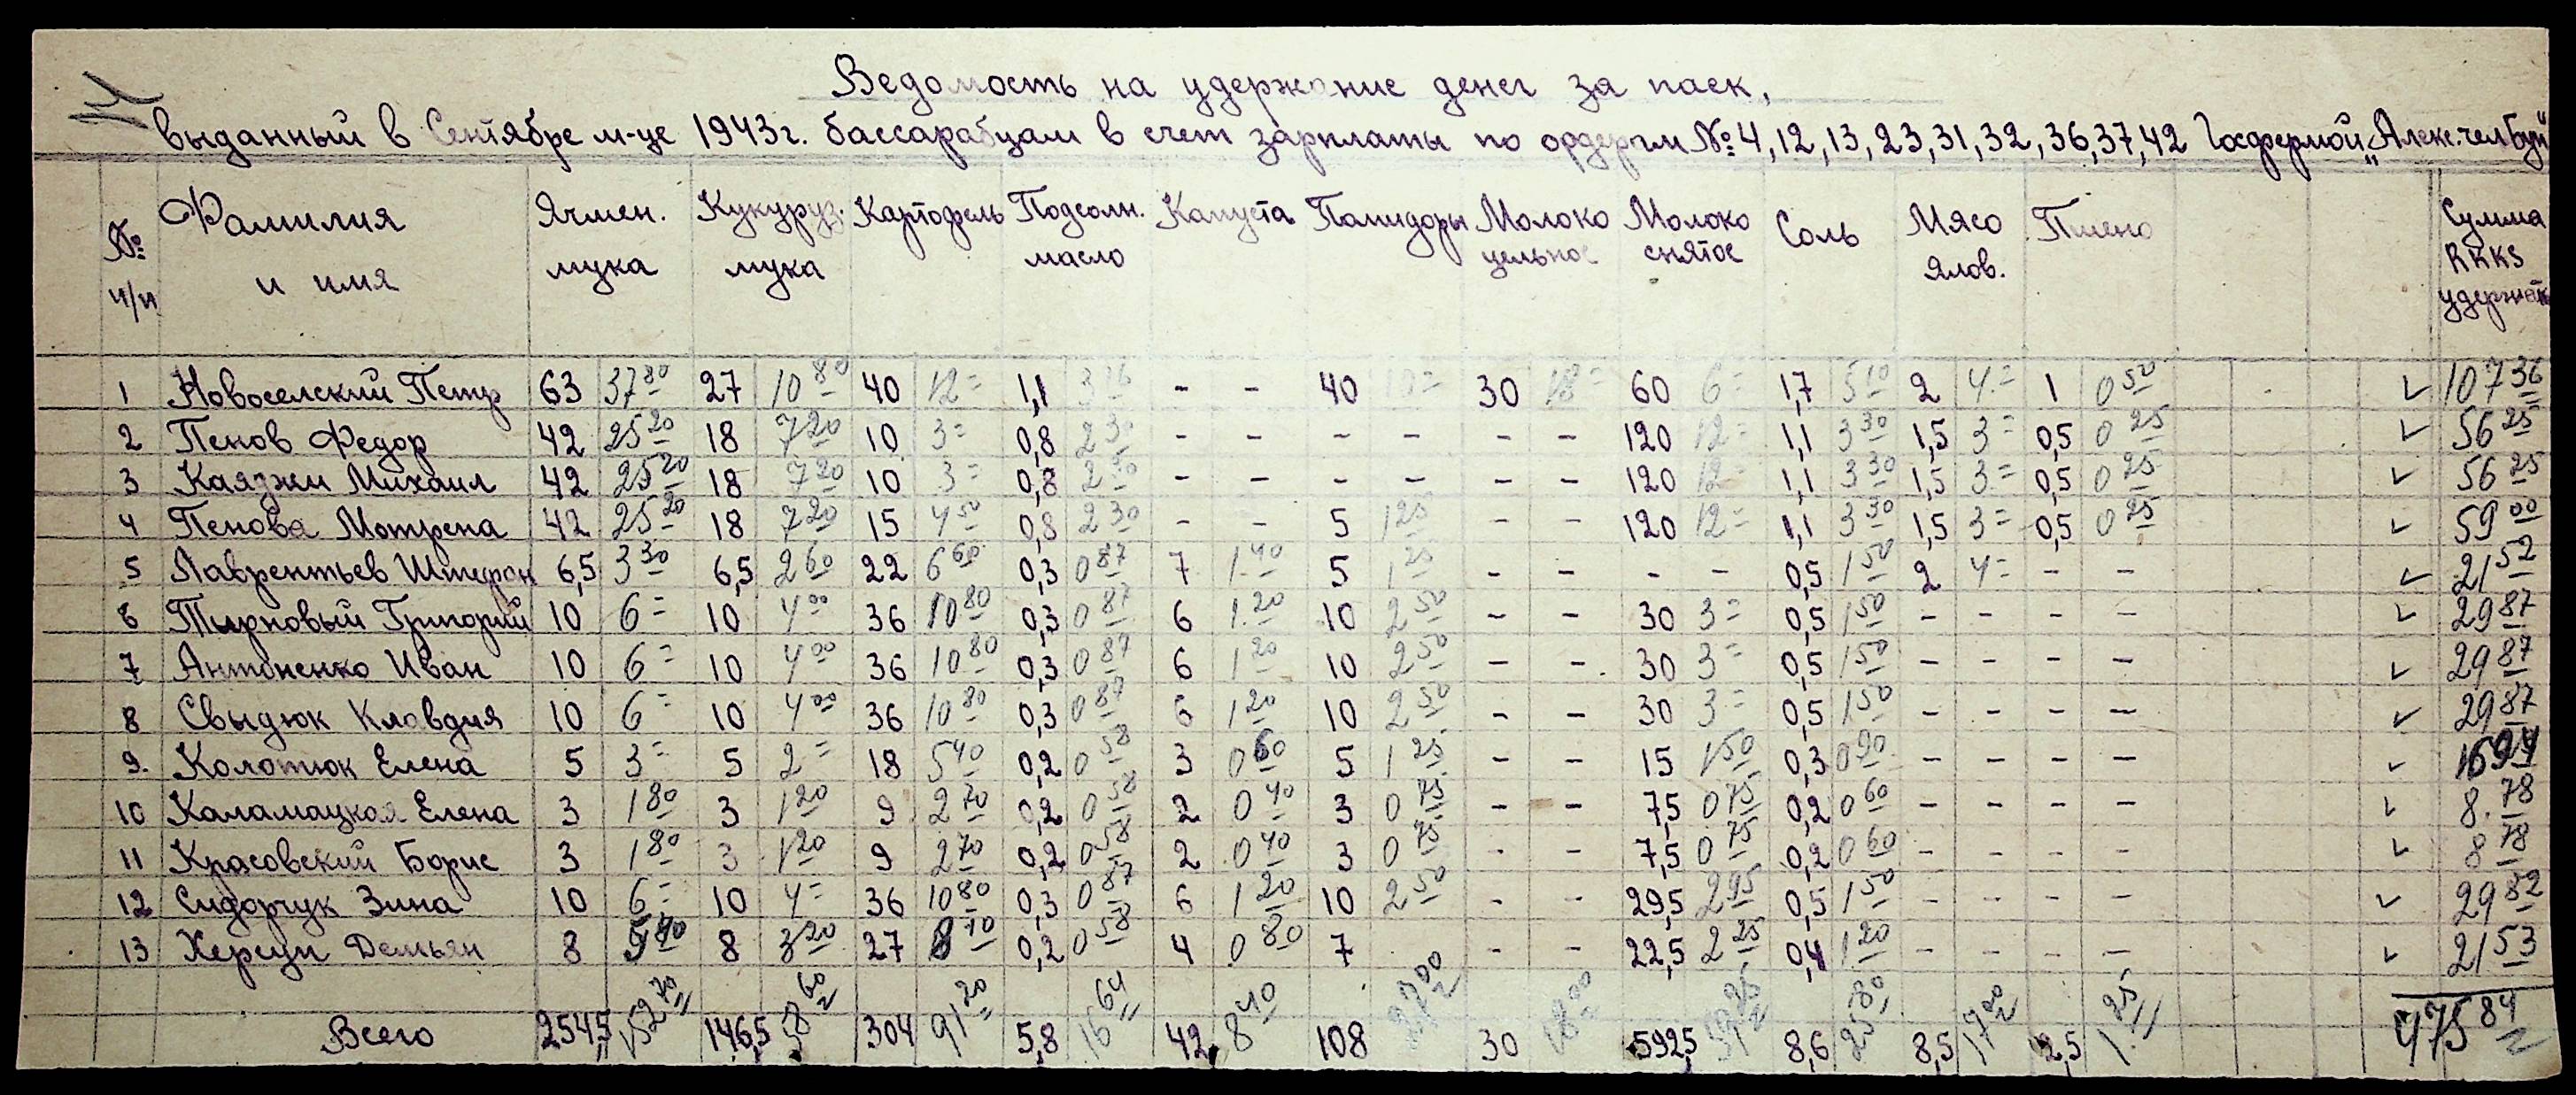 Ведомость на удержание денег за паек,
выданный в Сентябре м-це 1943 г. бассарабцам в счет зарплаты по ордерам № 4, 12, 13, 23, 31, 32, 36, 37, 42 Госфермой „Алекс. чел Буй"
№ п/п Фамилия и имя Ячмен. мука Кукуруз. мука Картофель Подсолн. масло Капуста Помидоры Молоко цельное Молоко снятое Соль Мясо Ялов. Пшено Сумма RKKS удержать
1 Новоселский Петр 63 37 80 27 10 80 40 12 = 1,1 3 16 - - 40 10 = 30 18 = 60 6 = 1,7 5 10 2 4 = 1 0 50 107 36
2 Пенов Федор 42 25 20 18 7 20 10 3 = 0,8 2 30 - - - - - - 120 12 = 1,1 3 30 1,5 3 = 0,5 0 25 56 25
3 Каязжи Михаил 42 25 20 18 7 20 10 3 = 0,8 2 30 - - - - - - 120 12 = 1,1 3 30 1,5 3 = 0,5 0 25 56 25
4 Пенова Мотрена 42 25 20 18 7 20 15 4 50 0,8 2 30 - - 5 1 25 - - 120 12 = 1,1 3 30 1,5 3 = 0,5 0 25 59 00
5 Лаврентьев 6,5 3 30 6,5 2 60 22 6 60 0,3 0 87 7 1 40 5 1 25 - - - - 0,5 1 50 2 4 = - - 21 52
6 Тырновый Григорий 10 6 = 10 4 00 36 10 80 0,3 0 87 6 1 20 10 2 50 - - 30 3 = 0,5 1 50 - - - - 29 87
7 Антоненко Иван 10 6 = 10 4 00 36 10 80 0,3 0 87 6 1 20 10 2 50 - - 30 3 = 0,5 1 50 - - - - 29 87
8 Свыдюк Клавдия 10 6 = 10 4 00 36 10 80 0,3 0 87 6 1 20 10 2 50 - - 30 3 = 0,5 1 50 - - - - 29 87
9. Колотюк Елена 5 3 = 5 2 = 18 5 40 0,2 0 58 3 0 60 5 1 25 - - 15 1 50 0,3 0 90 - - - - 16 94
10 Каламацкая Елена 3 1 80 3 1 20 9 2 70 0,2 0 58 2 0 40 3 0 75 - - 7,5 0 75 0,2 0 60 - - - - 8. 78
11 Красовский Борис 3 1 80 3 1 20 9 2 70 0,2 0 58 2 0 40 3 0 75 - - 7,5 0 75 0,2 0 60 - - - - 8 78
12 Сидорчук Зина 10 6 = 10 4 = 36 10 80 0,3 0 87 6 1 20 10 2 50 - - 29,5 2 95 0,5 1 50 - - - - 29 82
13 Херсун Демьян 8 8 3 20 27 8 10 0,2 0 58 4 0 80 7 - - 22,5 2 25 0,4 1 20 - - - - 21 53
Всего 254,5 152 70 146,5 58 60 304 91 20 5,8 16 64 42, 8 40 108 27 00 30 18 00 592,5 59 25 8,6 25 80 8,5 17 00 2,5 1. 25 475 84